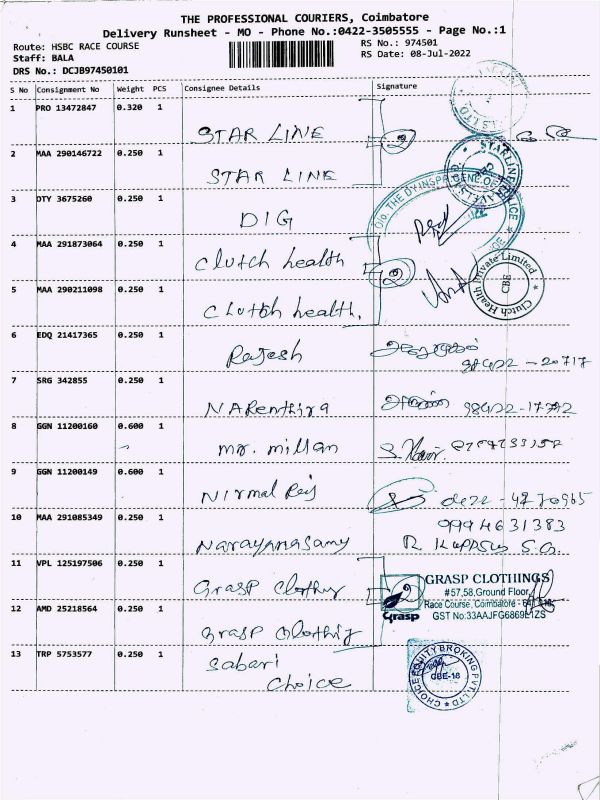 THE PROFESSIONAL COURIERS, Coimbatore
Delivery Runsheet - MO - Phone No.:0422-3505555 - Page No.:1
Route: HSBC RACE COURSE
RS No.: 974501
Staff: BALA
RS Date: 08-Jul-2022
DRS No.: DCJB97450101
S No Consignment No Weight PCS Consignee Details Signature
1 PRO 13472847 0.320 1
STAR LINE 2
2 MAA 290146722 0.250 1
STAR LINE
3 OTY 3675260 0.250 1
DIG
4 MAA 291873064 0.250 1
clutch health 2
5 MAA 290211098 0.250 1
clutch health.
Clutch Health Private Limited
CBE
6 EDQ 21417365 0.250 1
Rajesh
98422-20717
7 SRG 342855 0.250 1
Narenthira 98422-17792
8 GGN 11200160 0.600 1
mr. millan
9 GGN 11200149 0.600 1
Nirmal Raj
9994631383
10 MAA 291085349 0.250 1
Narayanasamy
11 VPL 125197506 0.250 1
Grasp Clothing 2
GRASP CLOTHINGS
#57,58,Ground Floor,
Race Course, Coimbatore -
Grasp
GST No:33AAJFG6869L1ZS
12 AMD 25218564 0.250 1
Grasp Clothing
13 TRP 5753577 0.250 1
Sabari
Choice
CHOICE EQUITY BROKING PVT. LTD
CBE-18